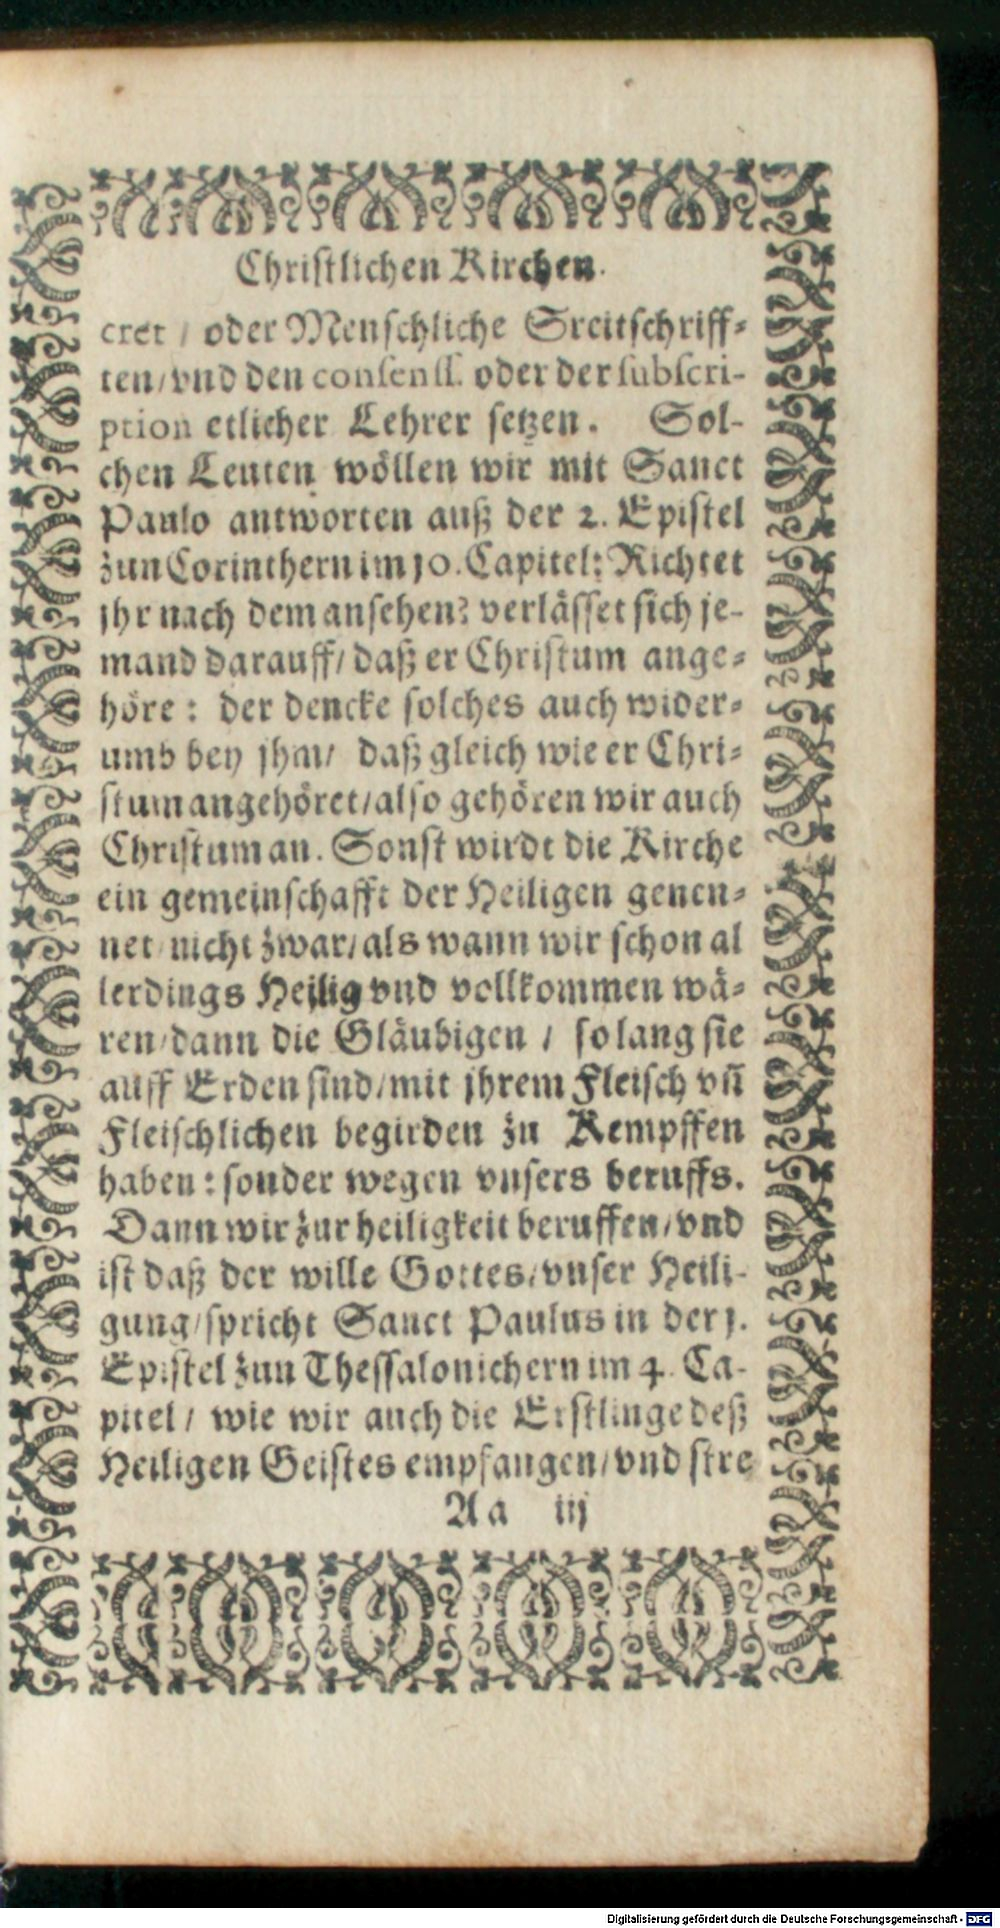 Christlichen Kirchen.
cret / oder Menschliche Streitschriff-
ten/vnd den consens. oder der subscri-
ption etlicher Lehrer setzen. Sol-
chen Leuten wöllen wir mit Sanct
Paulo antworten auß der 2. Epistel
zun Corinthern im 10. Capitel: Richtet
jhr nach dem ansehen? verlässet sich je-
mand darauff/ daß er Christum ange-
höre: der dencke solches auch wider-
umb bey jhm/ daß gleich wie er Chri-
stum angehöret/also gehören wir auch
Christum an. Sonst wirdt die Kirche
ein gemeinschafft der Heiligen genen-
net/nicht zwar/als wann wir schon al
lerdings Heilig vnd vollkommen wä-
ren/dann die Gläubigen / so lang sie
auff Erden sind/mit jhrem Fleisch vñ
Fleischlichen begirden zu Kempffen
haben: sonder wegen vnsers beruffs.
Dann wir zur heiligkeit beruffen/vnd
ist daß der wille Gottes/vnser Heili-
gung/spricht Sanct Paulus in der 1.
Epistel zun Thessalonichern im 4. Ca-
pitel/ wie wir auch die Erstlinge deß
Heiligen Geistes empfangen/vnd stre
Aa iij
Digitalisierung gefördert durch die Deutsche Forschungsgemeinschaft - DFG